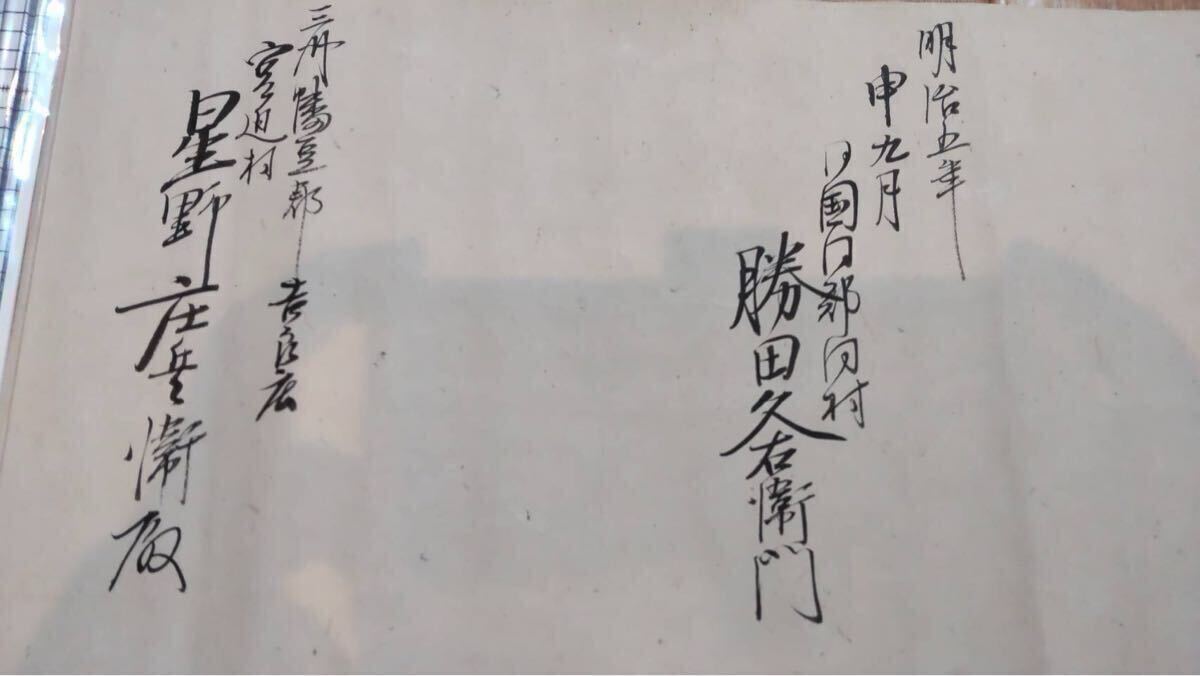 明治五年
申九月
同国同郡同村
勝田久右衛門
三州幡豆郡吉良庄
宮迫村
星野庄兵衛殿